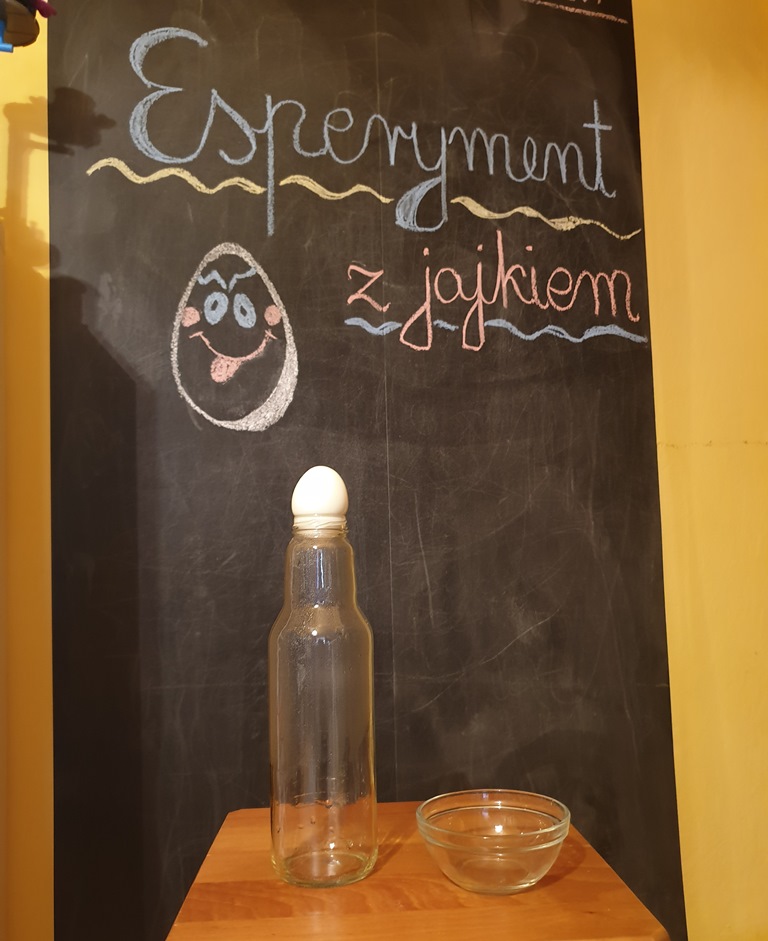 Esperyment
z jajkiem